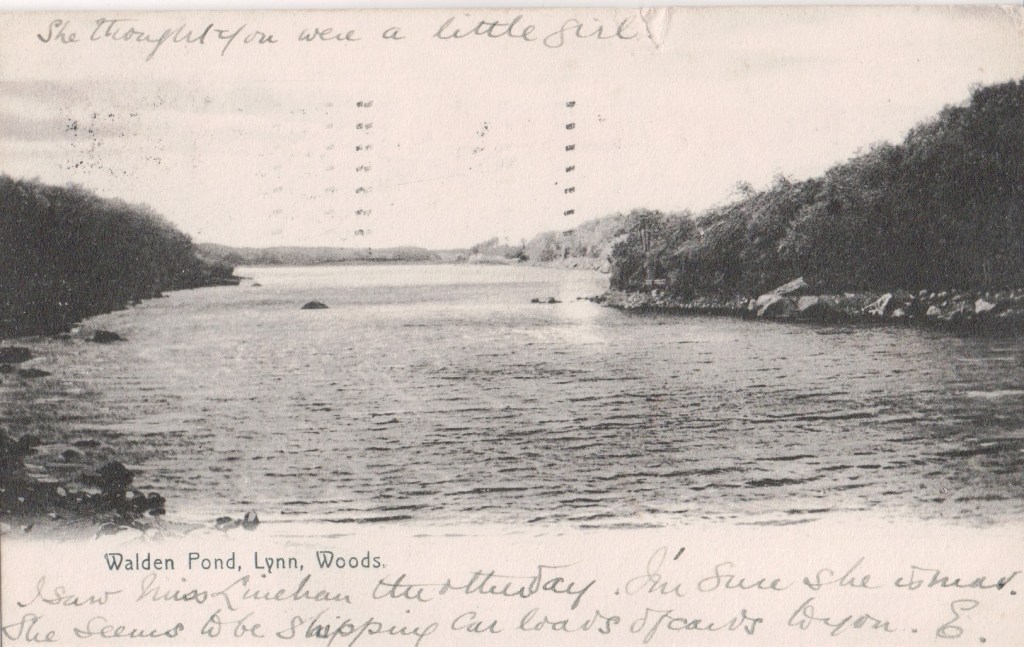 She thought you were a little girl
Walden Pond, Lynn, Woods.
I saw Miss Linehan the other day. I'm sure she is mad.
She seems to be shipping car loads of cards to you. E.